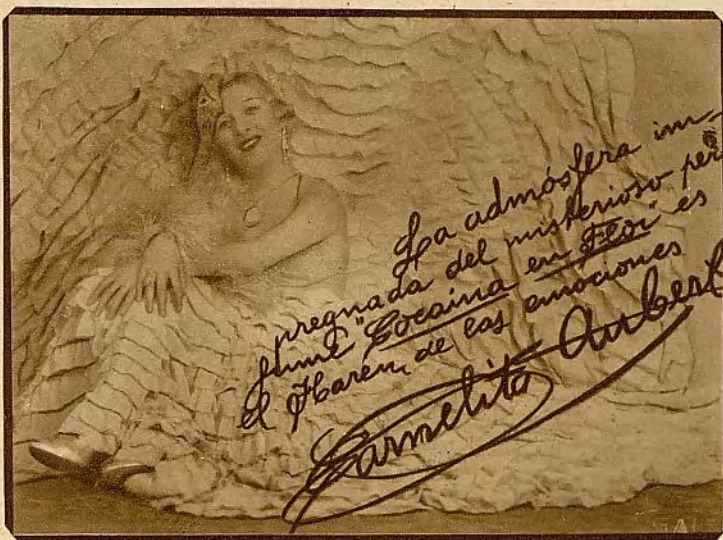 La admósfera im-
pregnada del misterioso per
fume "Cocaina en Flor" es
el Haren, de las emociones
Carmelita Aubert